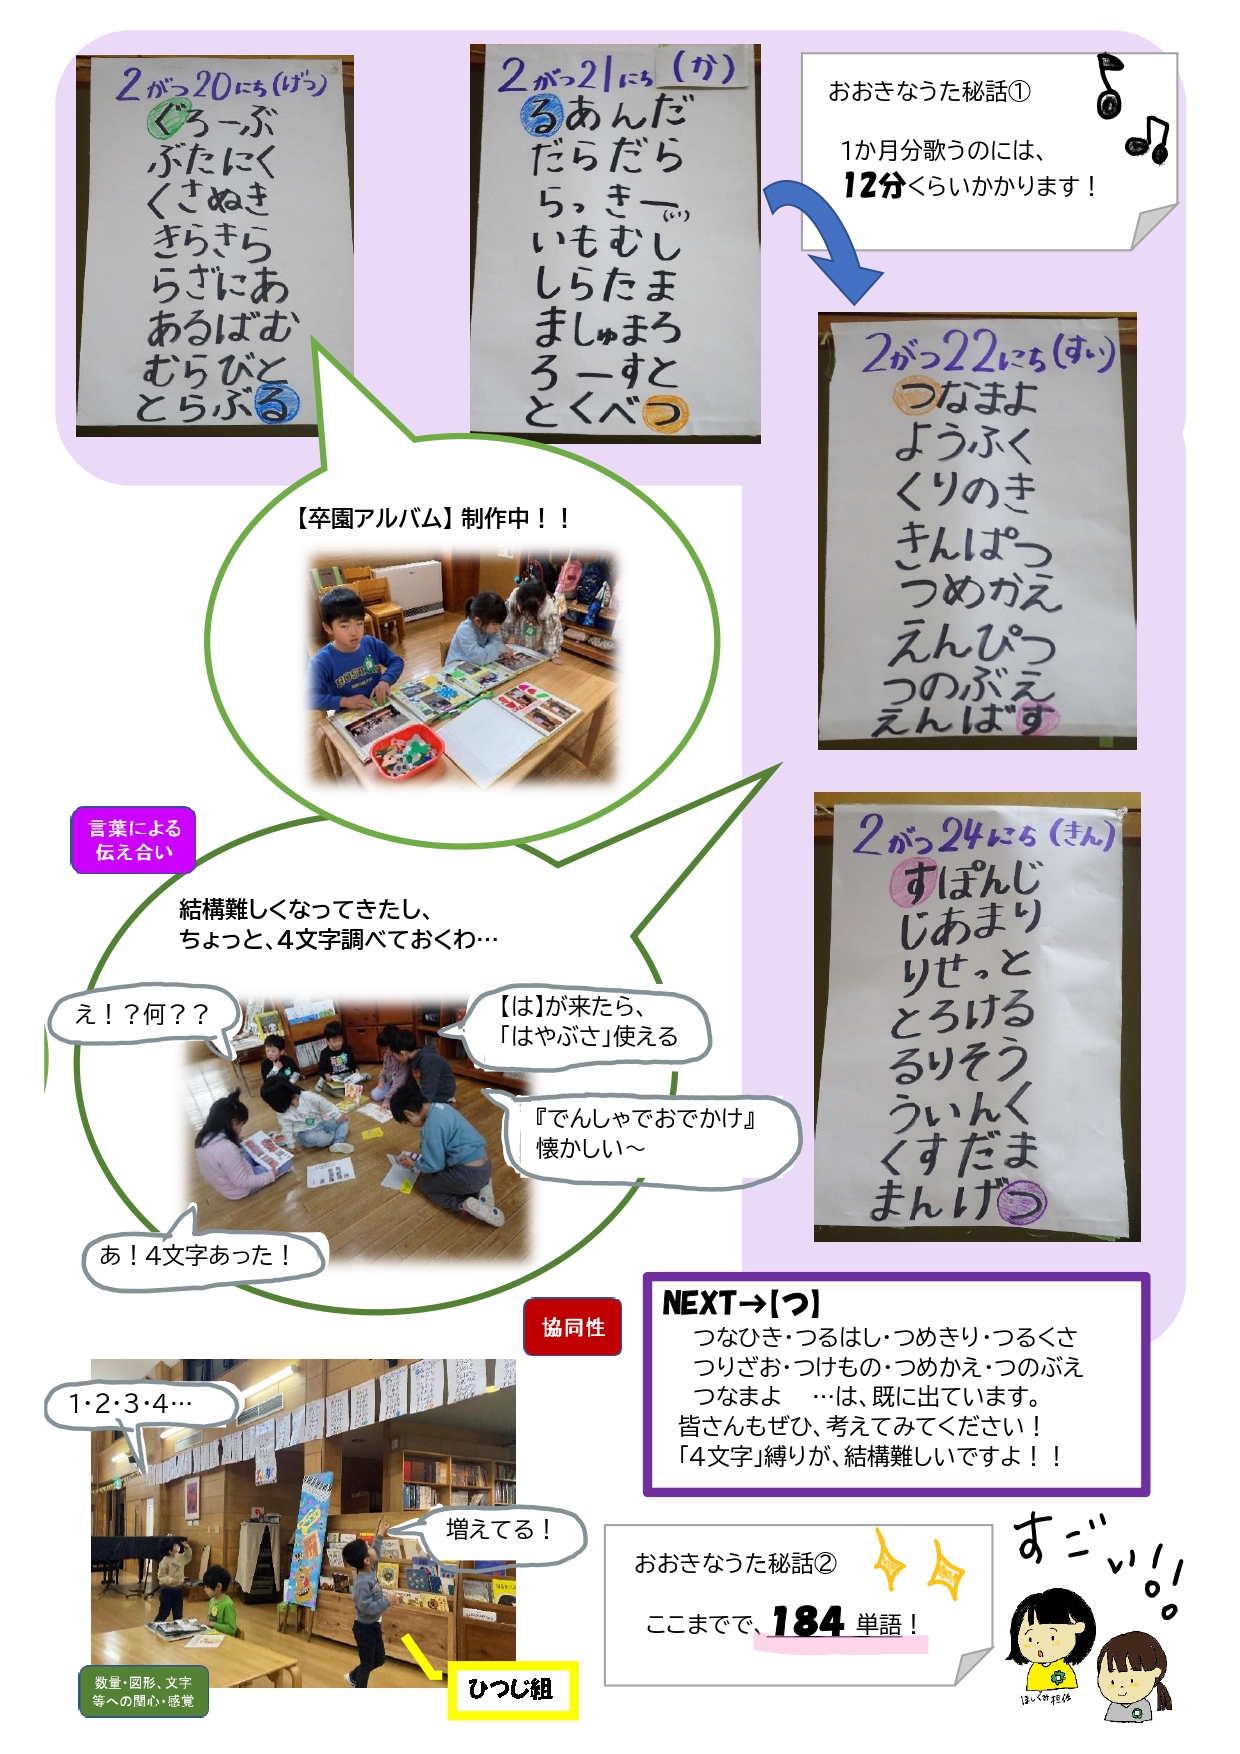 2がつ20にち(げつ)
ぐろーぶ
ぶたにく
くさぬき
きらきら
らざにあ
あるばむ
むらびと
とらぶる
2がつ21にち(か)
るあんだ
だらだら
らっきー(い)
いもむし
しらたま
ましゅまろ
ろーすと
とくべつ
おおきなうた秘話①
1か月分歌うのには、
12分くらいかかります！
2がつ22にち(すい)
つなまよ
ようふく
くりのき
きんぱつ
つめかえ
えんぴつ
つのぶえ
えんばす
【卒園アルバム】制作中！！
2がつ24にち(きん)
すぽんじ
じあまり
りせっと
とろける
るりそう
ういんく
くすだま
まんげつ
言葉による
伝え合い
結構難しくなってきたし、
ちょっと、4文字調べておくわ…
え！？何？？
【は】が来たら、
「はやぶさ」使える
『でんしゃでおでかけ』
懐かしい～
あ！4文字あった！
協同性
NEXT→【つ】
つなひき・つるはし・つめきり・つるくさ
つりざお・つけもの・つめかえ・つのぶえ
つなまよ　…は、既に出ています。
皆さんもぜひ、考えてみてください！
「4文字」縛りが、結構難しいですよ！！
1・2・3・4…
増えてる！
ひつじ組
数量・図形、文字
等への関心・感覚
おおきなうた秘話②
ここまでで、184単語！
すごい！！
ほしぐみ担任